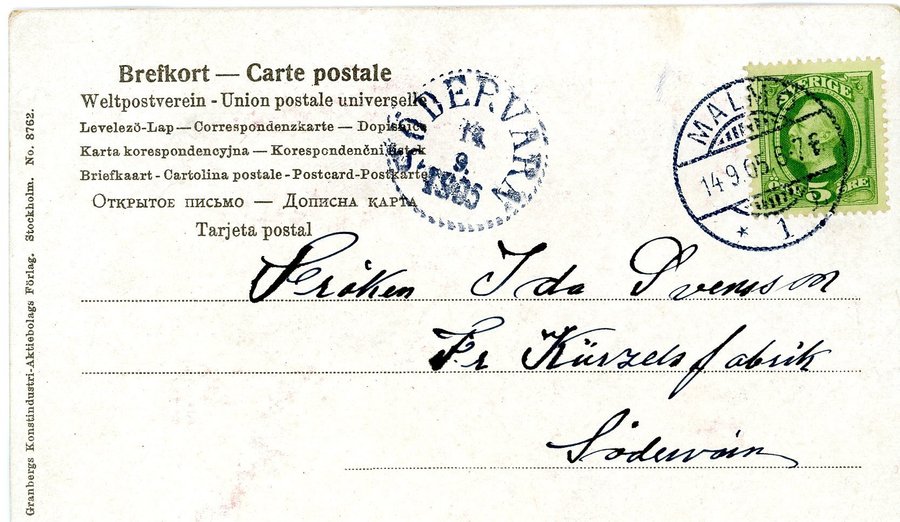 Brefkort — Carte postale
Weltpostverein - Union postale universelle
Levelező-Lap — Correspondenzkarte — Dopisnice
Karta korespondencyjna — Korespondenční lístek
Briefkaart - Cartolina postale - Postcard-Postkarte
Открытое письмо — Дописна карта
Tarjeta postal
SÖDERVÄRN
14
9
1905
MALMÖ
14.9.05.6-7 E
* 1
SVERIGE
5 ÖRE
Fröken Ida Svensson
Fr Kürzels fabrik
Södervärn
Granbergs Konstindustri-Aktiebolags Förlag. Stockholm. No. 8762.